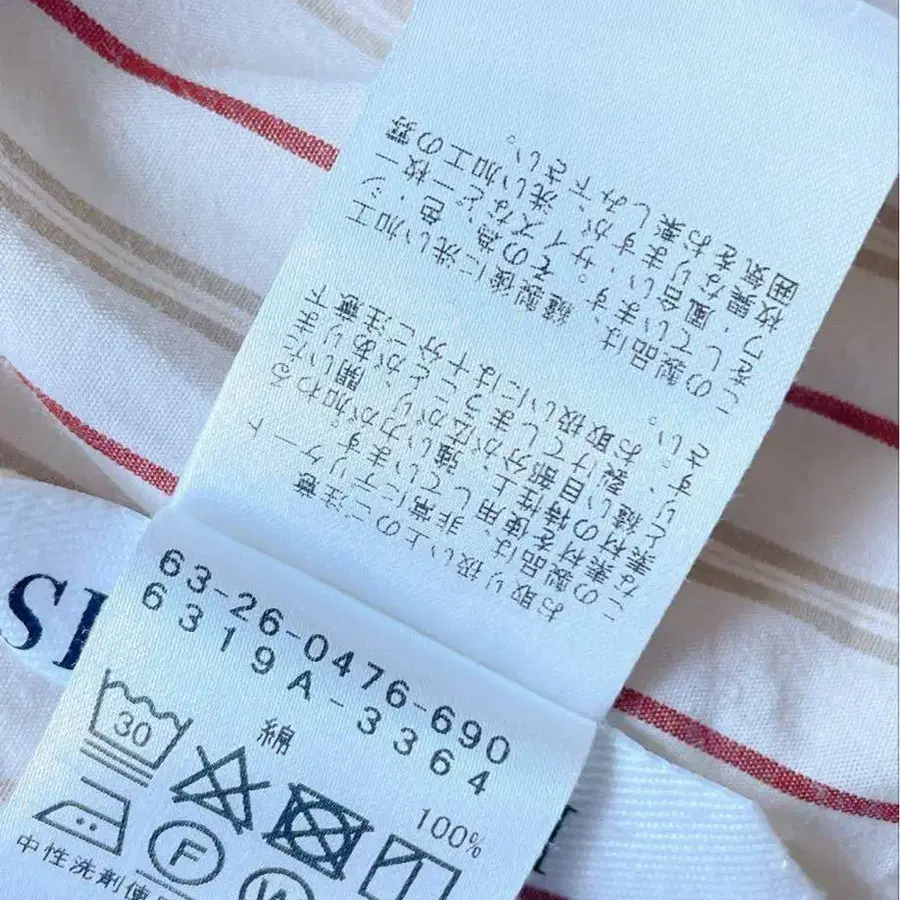 お取り扱い上のご注意
この製品は非常にデリケート
な素材を使用しています。
素材の特性上強い力が加わる
と縫い目部分が広がり開いた
り
お取扱いには十分ご注意下
さい。
この製品は、縫製後に洗い加工
をしています。その為、色・シ
ワ・風合い・サイズなど一枚一
枚異なりますが、洗い加工の雰
囲気をお楽しみ下さい。
63-26-0476-690
6319A-3364
綿 100%
30
F
W
中性洗剤使